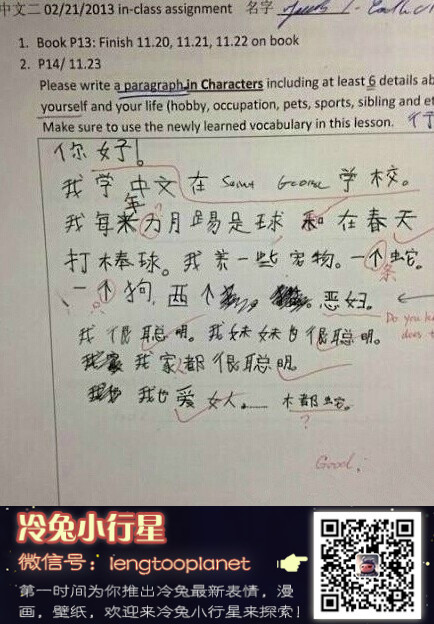 中文二 02/21/2013 in-class assignment 名字
1. Book P13: Finish 11.20, 11.21, 11.22 on book
2. P14/ 11.23
Please write a paragraph in Characters including at least 6 details ab
yourself and your life (hobby, occupation, pets, sports, sibling and et
Make sure to use the newly learned vocabulary in this lesson.
你好!
我学中文在 Saint George 学校。
年
我每来力月踢足球 和 在春天
打棒球。我养一些宠物。一个蛇。
条
一个狗,两个 恶妇。
Do you k
does t
我很聪明。我妹妹也很聪明。
我家都很聪明。
我也爱女人。 木都蛇。
?
Good!
冷兔小行星
微信号:lengtooplanet
第一时间为你推出冷兔最新表情,漫
画,壁纸,欢迎来冷兔小行星来探索!